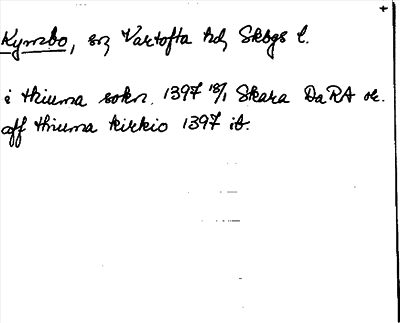 Kymbo, sn, Vartofta hd, Skbgs l.
i thiuma sokn. 1397 18/1 Skara DaRA or.
aff thiuma kirkio 1397 ib.